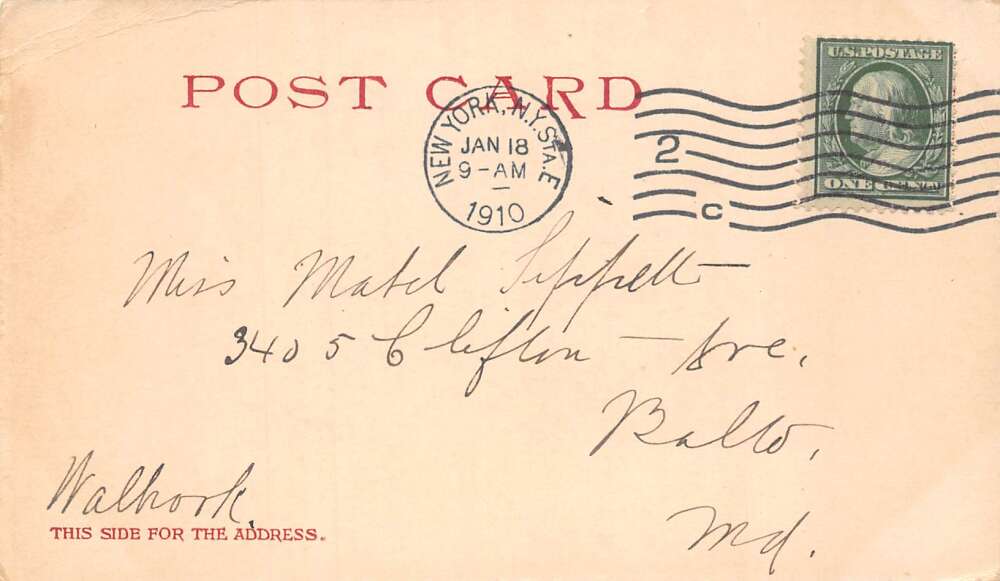 POST CARD
NEW YORK, N.Y. STA. E
JAN 18
9-AM
1910
2
C
U.S. POSTAGE
ONE
Miss Mabel Sippell
3405 Clifton Ave.
Balto,
Walbrook.
Md.
THIS SIDE FOR THE ADDRESS.